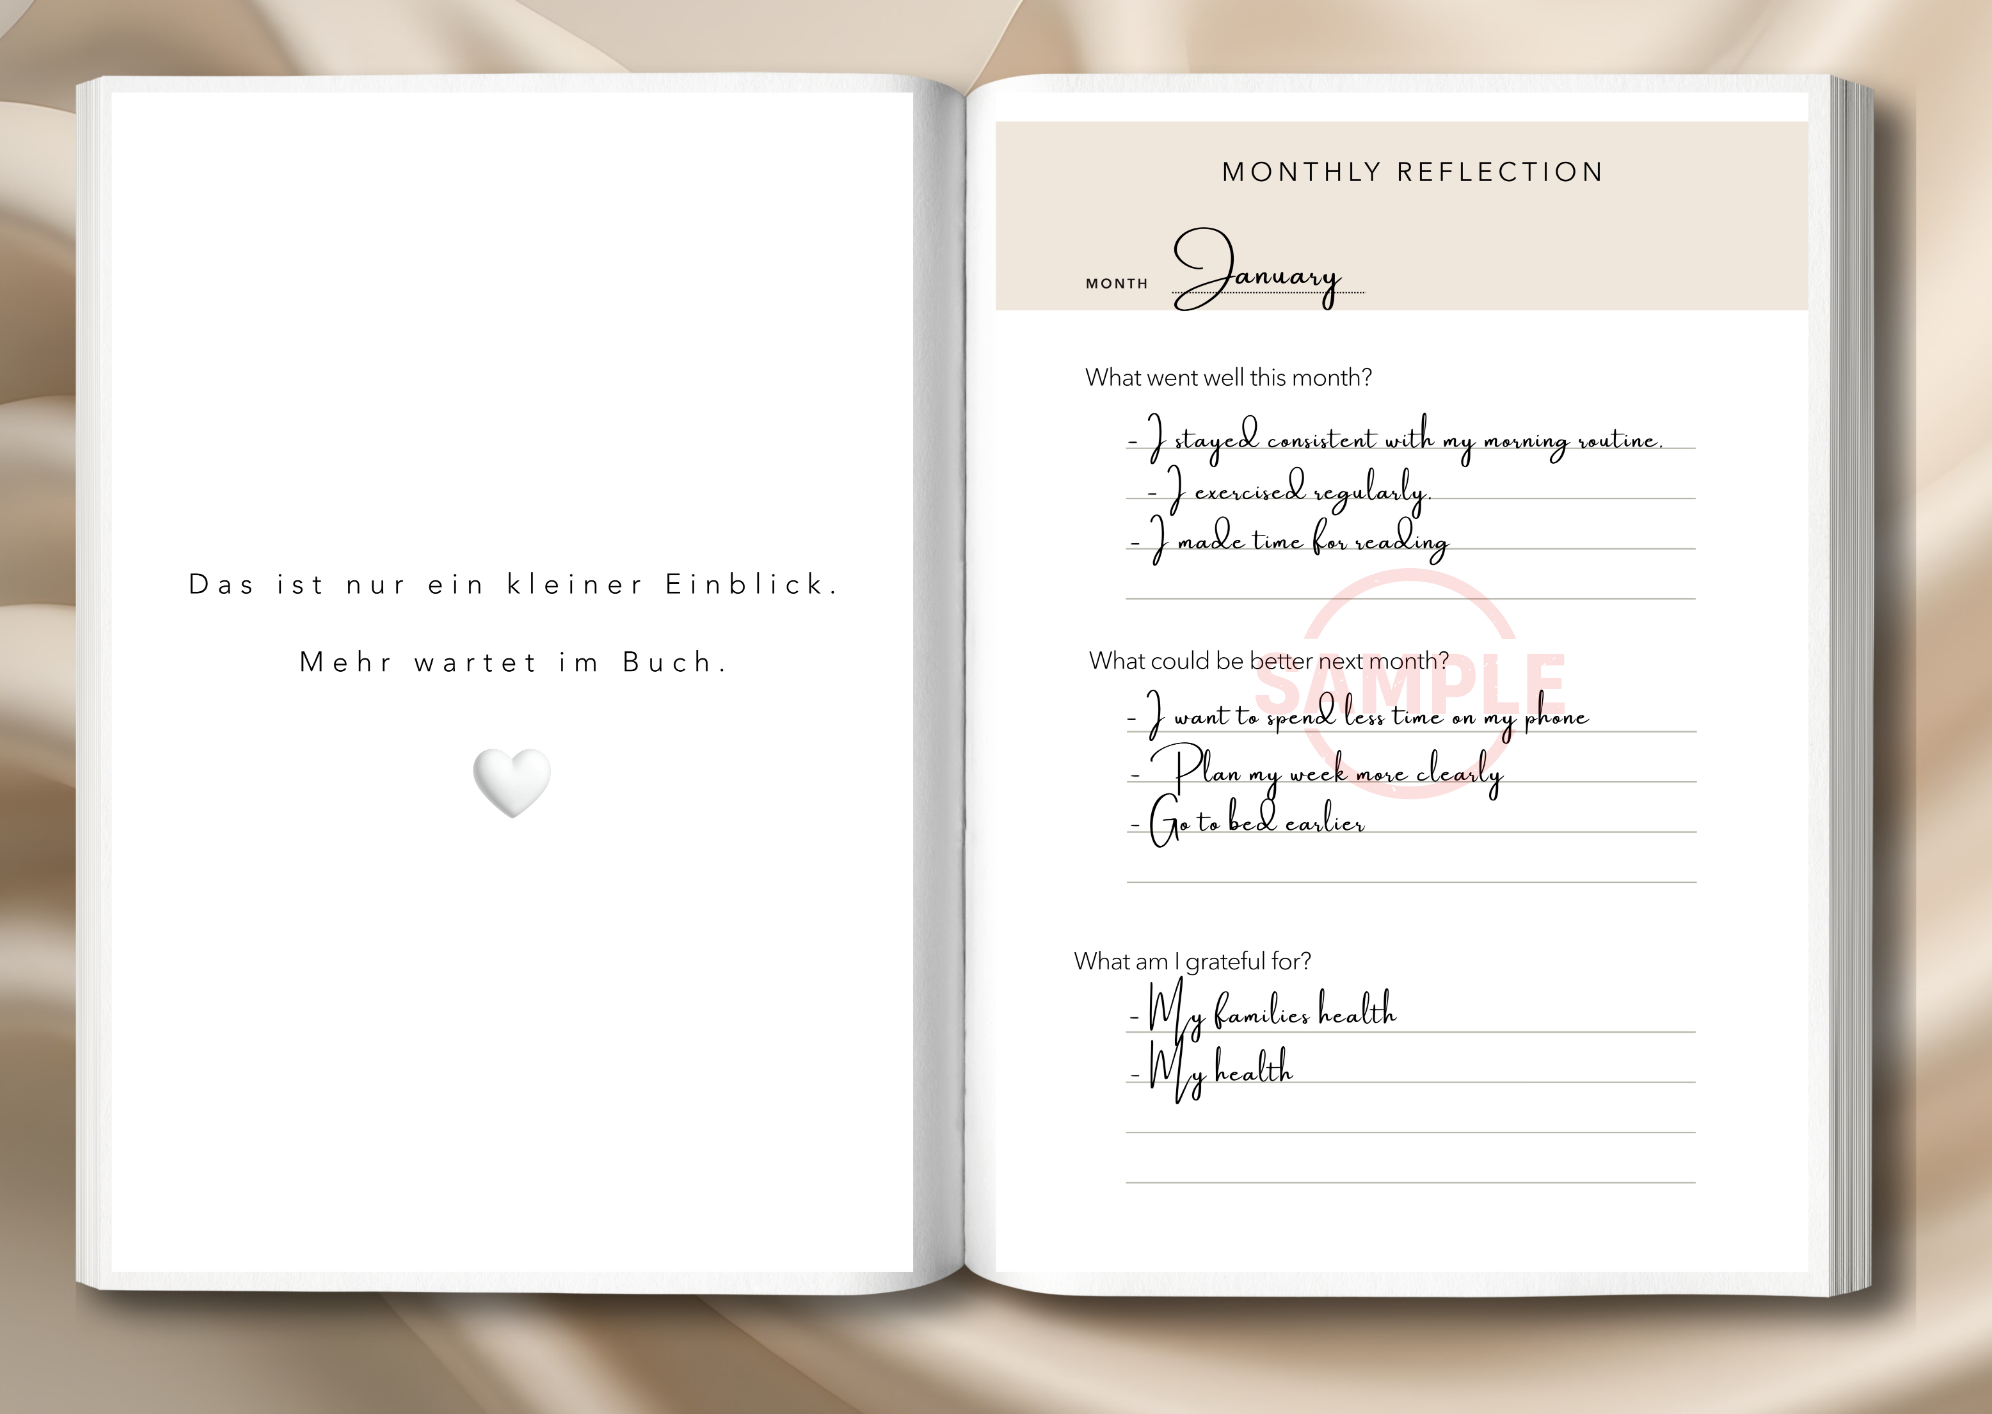 Das ist nur ein kleiner Einblick.
Mehr wartet im Buch.
MONTHLY REFLECTION
MONTH January
What went well this month?
- I stayed consistent with my morning routine.
- I exercised regularly.
- I made time for reading
What could be better next month?
SAMPLE
- I want to spend less time on my phone
- Plan my week more clearly
- Go to bed earlier
What am I grateful for?
- My families health
- My health